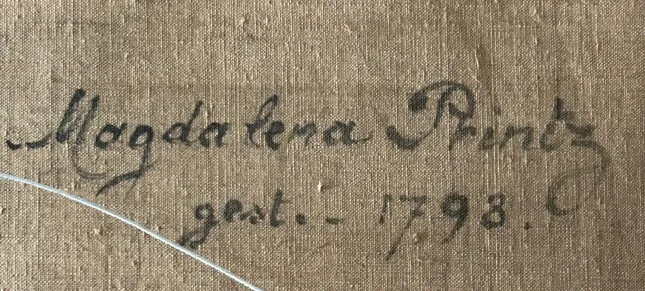 Magdalena Printz
gest. - 1793.